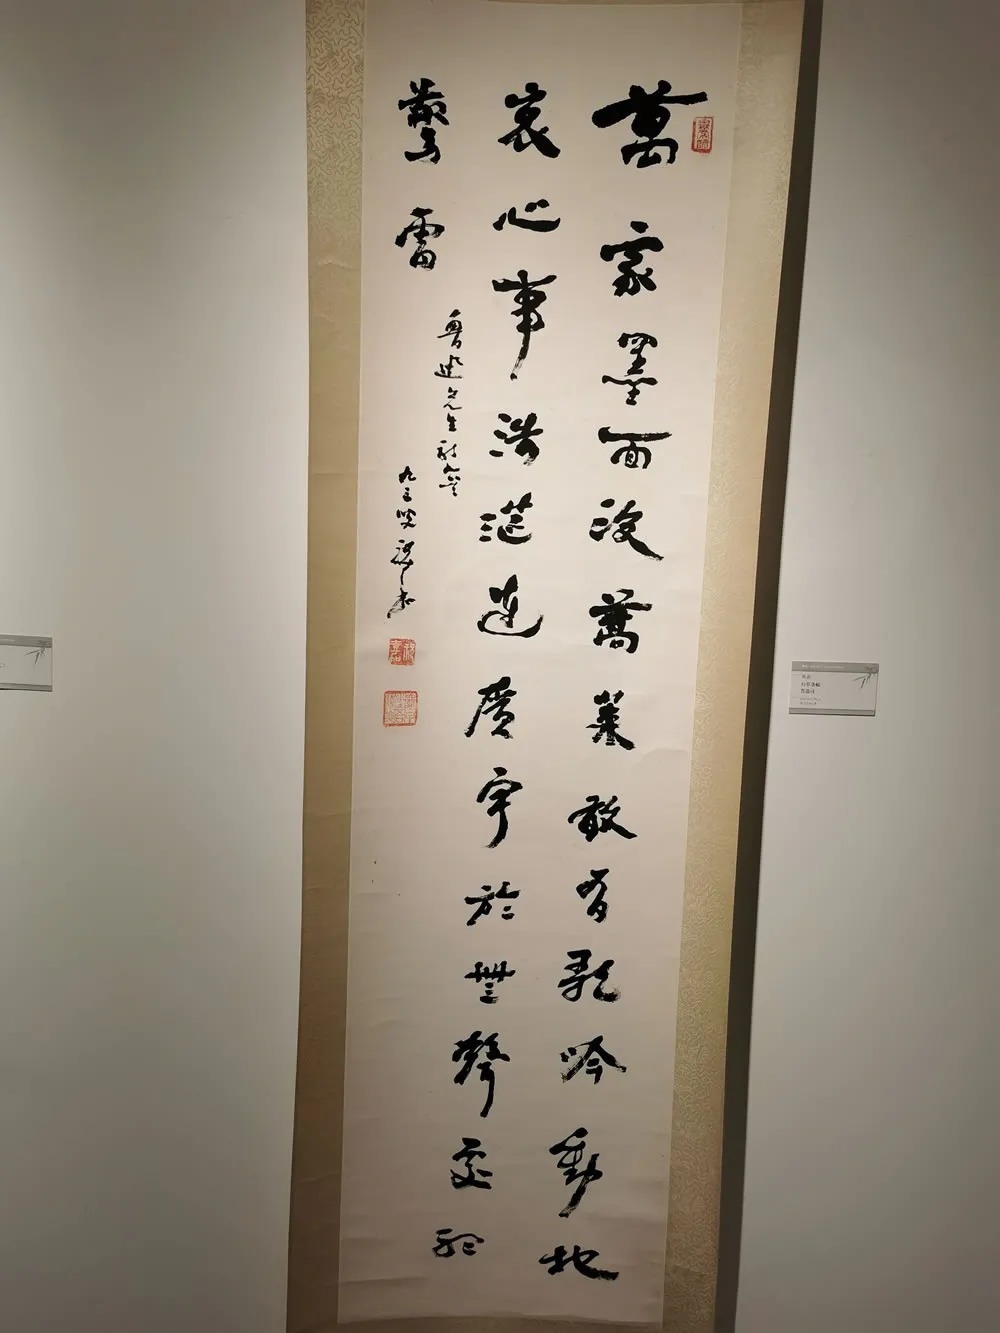 萬家墨面沒蒿萊敢有歌吟動地
哀心事浩茫連廣宇於無聲處聽
驚雷
魯迅先生
九三叟